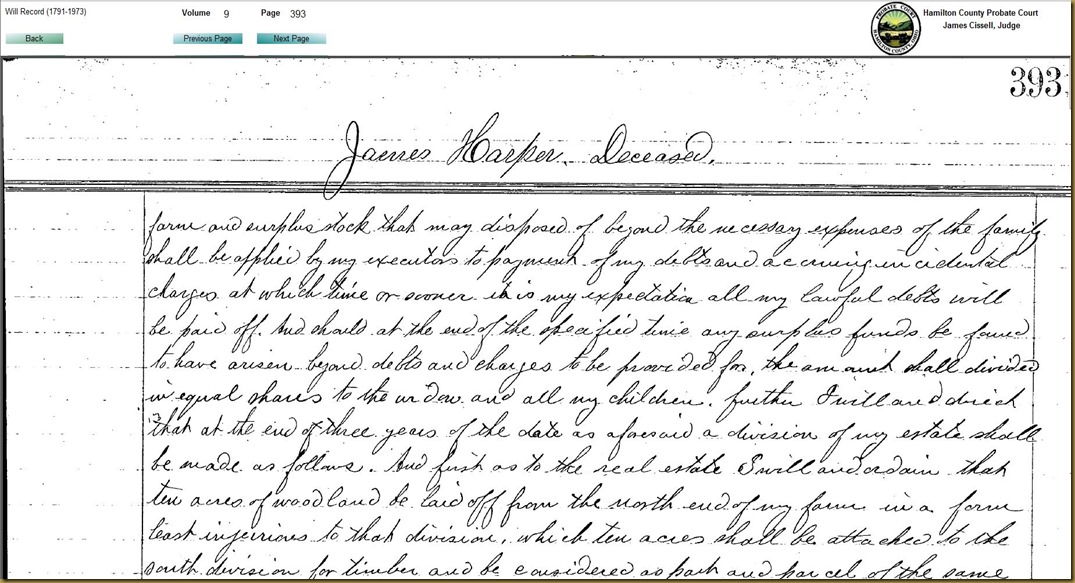 Will Record (1791-1973)
Volume 9 Page 393
Hamilton County Probate Court
James Cissell, Judge
Back
Previous Page
Next Page
PROBATE COURT
HAMILTON COUNTY, OHIO
393
James Harper. Deceased.
farm and surplus stock that may disposed of beyond the necessary expenses of the family
shall be applied by my executors to payment of my debts and accruing incidental
charges at which time or sooner it is my expectation all my lawful debts will
be paid off. And should at the end of the specified time any surplus funds be found
to have arisen beyond debts and charges to be provided for, the amount shall divided
in equal shares to the widow and all my children. further I will and direct
that at the end of three years of the date as aforesaid a division of my estate shall
be made as follows. And first as to the real estate I will and ordain that
ten acres of woodland be laid off from the north end of my farm in a form
least injurious to that division, which ten acres shall be attached to the
south division for timber and be considered as part and parcel of the same